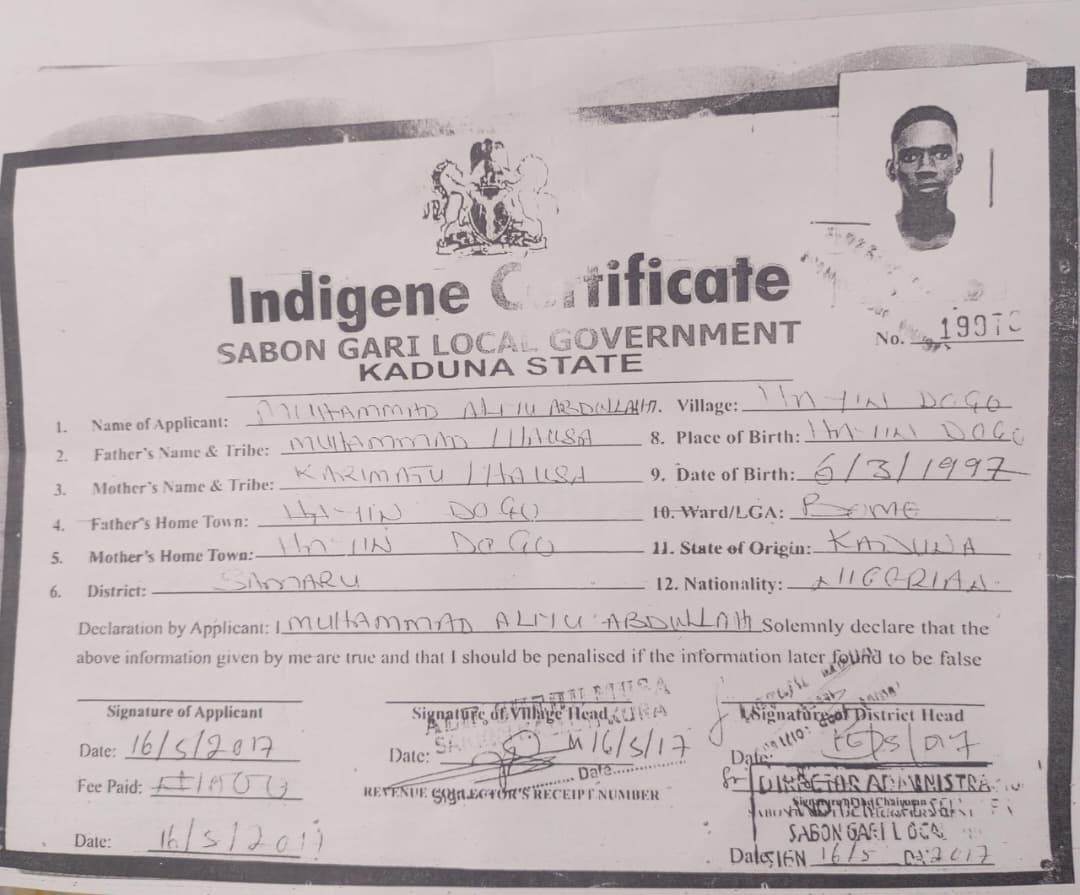 Indigene Certificate
SABON GARI LOCAL GOVERNMENT
KADUNA STATE
No.
1. Name of Applicant: MUHAMMAD ALIYU ABDULLAHI. Village: HAYIN DOGO
2. Father's Name & Tribe: MUHAMMAD / HAUSA 8. Place of Birth: HAYIN DOGO
3. Mother's Name & Tribe: KARIMATU / HAUSA 9. Date of Birth: 6/3/1997
4. Father's Home Town: HAYIN DOGO 10. Ward/LGA: BOMO
5. Mother's Home Town: HAYIN DOGO 11. State of Origin: KADUNA
6. District: SAMARU 12. Nationality: NIGERIAN
Declaration by Applicant: I MUHAMMAD ALIYU ABDULLAHI Solemnly declare that the
above information given by me are true and that I should be penalised if the information later found to be false
Signature of Applicant Signature of Village Head Signature of District Head
Date: 16/5/2017 Date: 16/5/17 Date:
Date
Fee Paid:
REVENUE COLLECTOR'S RECEIPT NUMBER
DIRECTOR ADMINISTRA
SABON GARI LOCAL
Date: 16/5/2017 Date: SIGN 16/5 2017